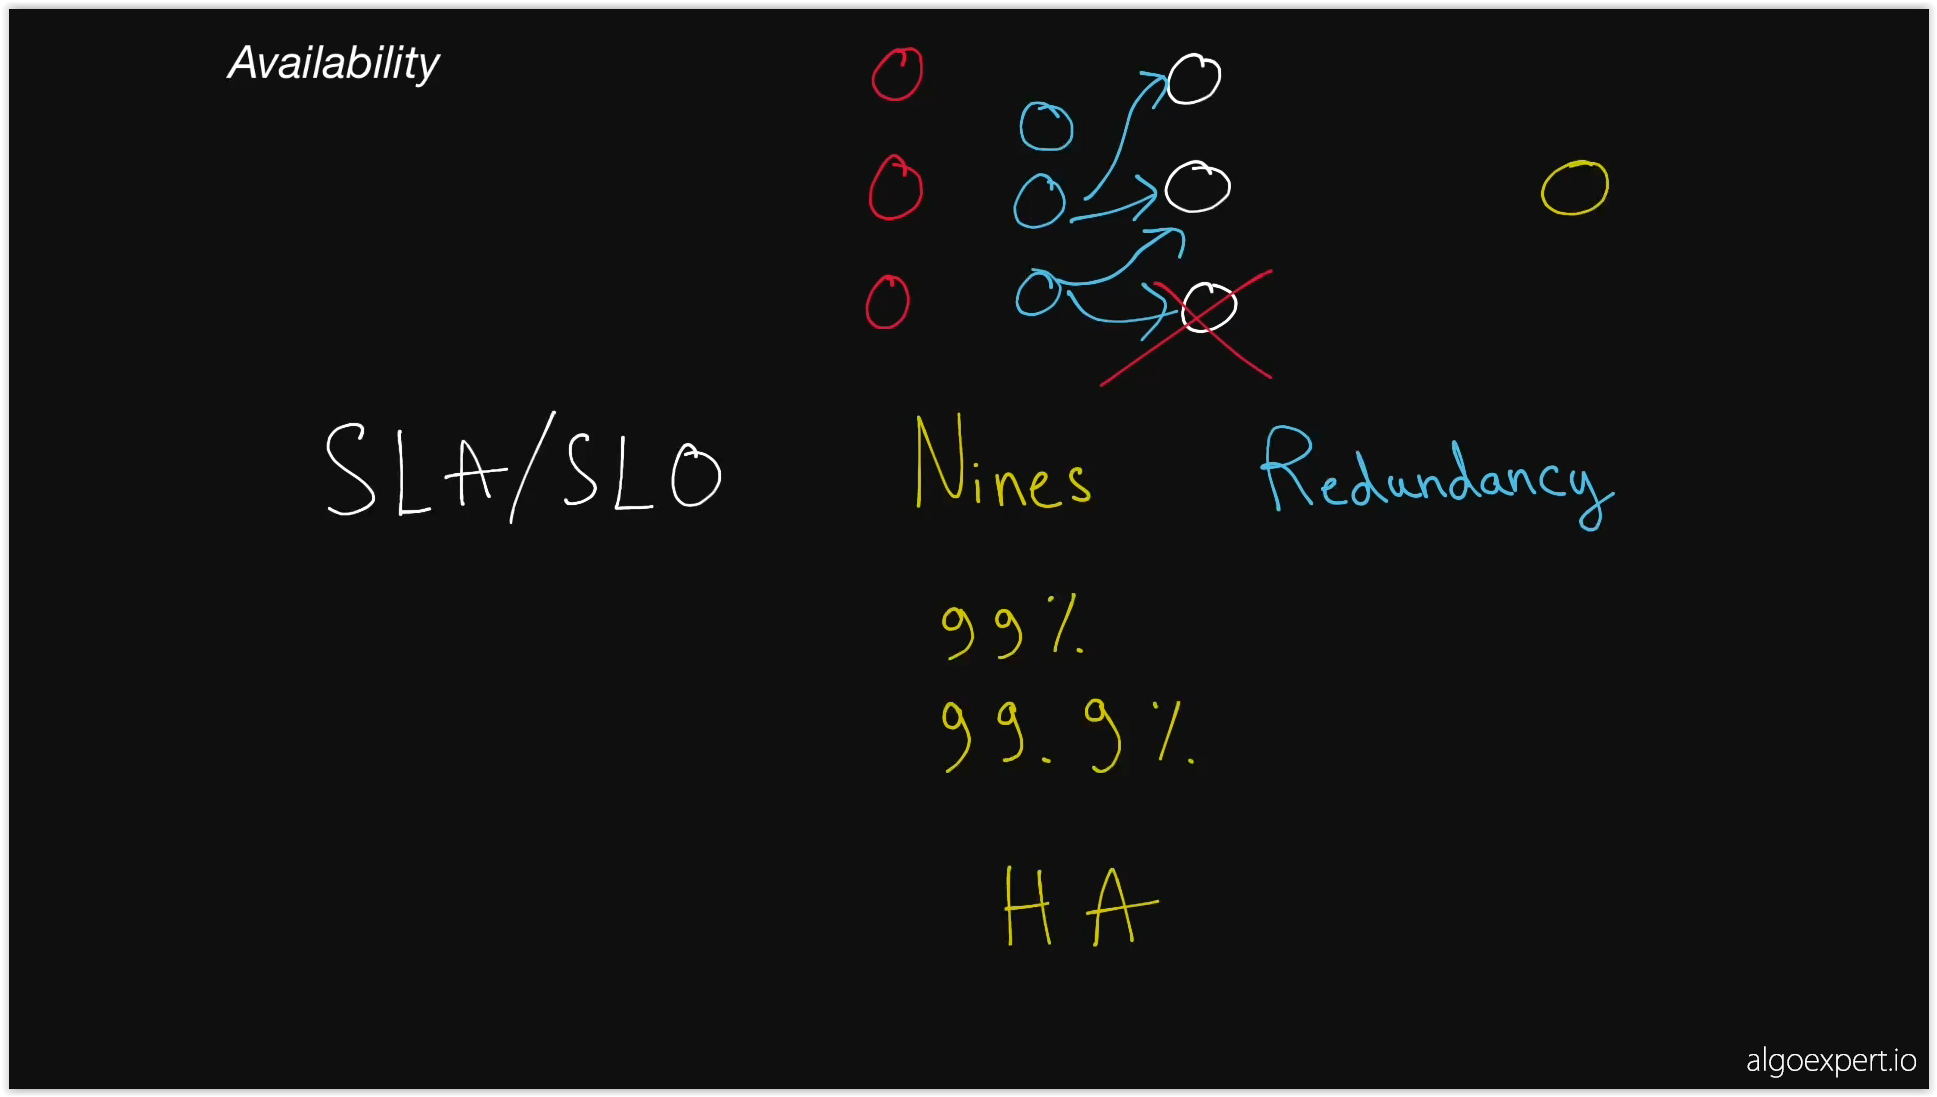 Availability
SLA/SLO Nines Redundancy
99%
99.9%
HA
algoexpert.io